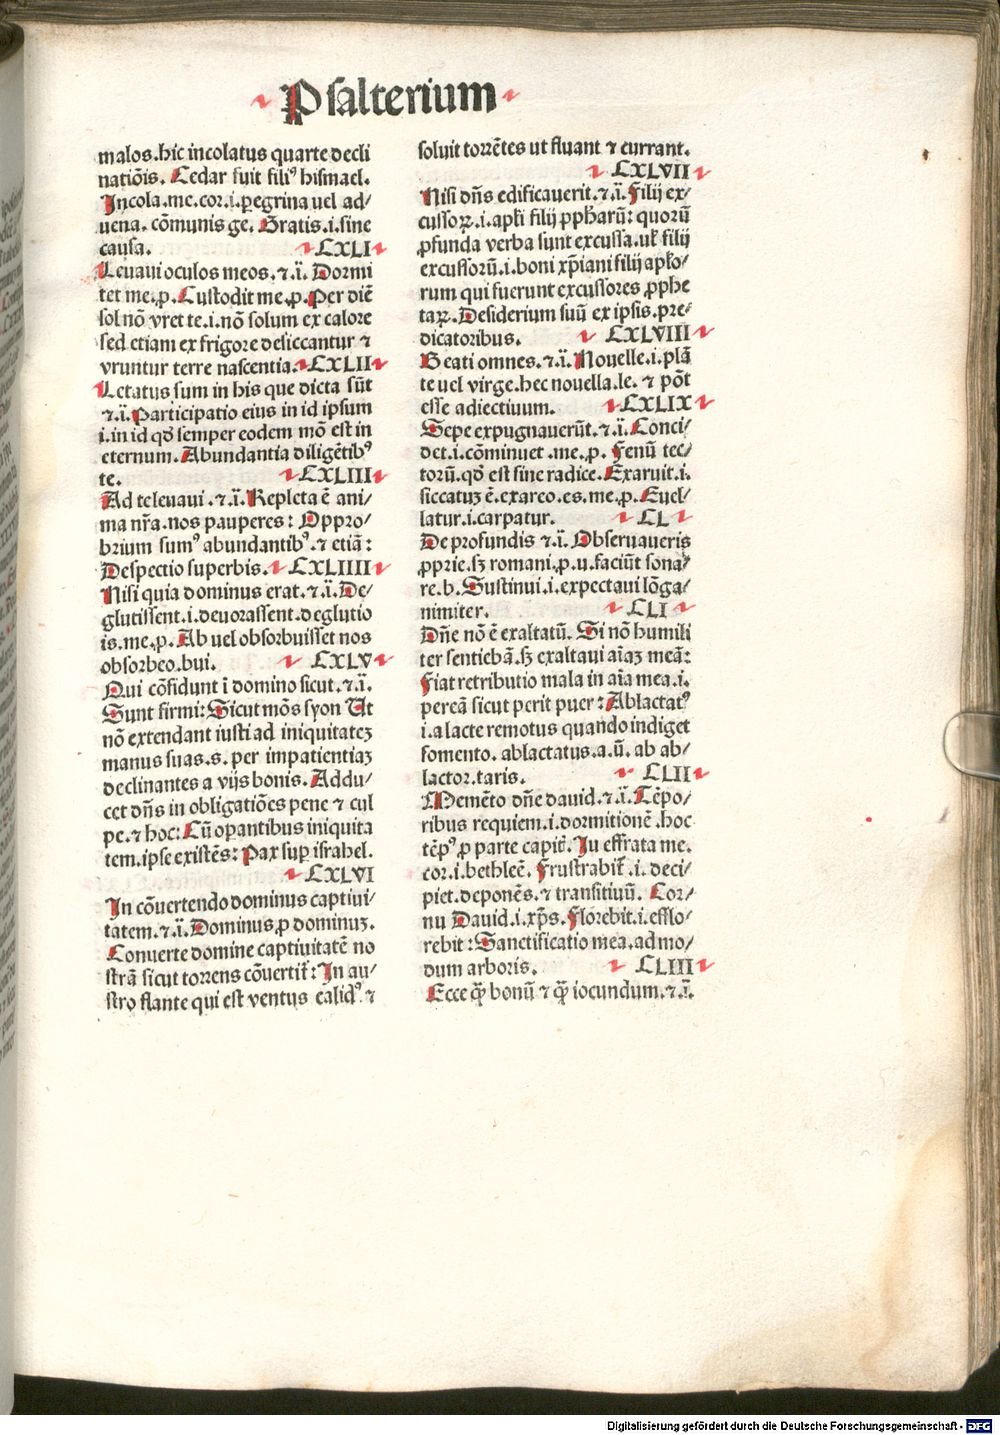 Psalterium
malos.hic incolatus quarte decli
natiōis. Cedar fuit filiꝰ hismael.
Incola.me.cor.i.ꝑegrina uel ad/
uena. cōmunis ge. Gratis.i.sine
causa. CXLI
Leuaui oculos meos.⁊.ï. Dormi
tet me.p. Custodit me.p. Per diē
sol nō vret te.i.nō solum ex calore
sed etiam ex frigore desiccantur ⁊
vruntur terre nascentia. CXLII
Letatus sum in his que dicta sūt
⁊.ï. Participatio eius in id ipsum
i.in id qď semper eodem mō est in
eternum. Abundantia diligētibꝰ
te. CXLIII
Ad te leuaui.⁊.ï. Repleta ē ani/
ma nr̄a.nos pauperes: Oppro/
brium sumꝰ abundantibꝰ.⁊ etiā:
Despectio superbis. CXLIIII
Nisi quia dominus erat.⁊.ï. De/
glutissent.i.deuorassent.deglutio
is.me.p. Ab uel obsorbuisset nos
obsorbeo.bui. CXLV
Qui cōfidunt ī domino sicut.⁊.ï.
Sunt firmi: Sicut mōs syon Ut
nō extendant iusti ad iniquitateꝫ
manus suas.s. per impatientiaꝫ
declinantes a vijs bonis. Addu/
cet dn̄s in obligatiōes pene ⁊ cul
pe.⁊ hoc: Cū oꝑantibus iniquita
tem.ipse existēs: Pax suꝑ israhel.
CXLVI
In cōuertendo dominus captiui/
tatem.⁊.ï. Dominus ꝓ dominuꝫ.
Conuerte domine captiuitatē no
strā sicut torrens cōuertit̄: In au/
stro flante qui est ventus calidꝰ.⁊
soluit torrētes ut fluant ⁊ currant.
CXLVII
Nisi dn̄s edificauerit.⁊.ï. Filij ex/
cussoꝝ.i.apľi filij ꝓphaꝛū: quorū
ꝓfunda verba sunt excussa.uľ filij
excussorū.i.boni xp̄iani filij apľo/
rum qui fuerunt excussores ꝓphe
taꝝ. Desiderium suū ex ipsis.pre/
dicatoribus. CXLVIII
Beati omnes.⁊.ï. Nouelle.i.plā
te uel virge.hec nouella.le. ⁊ pōt
esse adiectiuum. CXLIX
Sepe expugnauerūt.⁊.ï. Conci/
det.i.cōminuet.me.p. Fenū tec/
torū.qď est sine radice. Exaruit.i.
siccatuꝫ ē.exareo.es.me.p. Euel/
latur.i.carpatur. CL
De profundis ⁊.ï. Obseruaueris
ꝓprie.sꝫ romani.p.u.faciūt sona/
re.b. Sustinui.i.expectaui lōga/
nimiter. CLI
Dn̄e nō ē exaltatū. Si nō humili
ter sentiebā.sꝫ exaltaui aīaꝫ meā:
Fiat retributio mala in aīa mea.i.
pereā sicut perit puer: Ablactatꝰ
i.a lacte remotus quando indiget
fomento. ablactatus.a.ū. ab ab/
lactor.taris. CLII
Memēto dn̄e dauid.⁊.ï. Tēpo/
ribus requiem.i.dormitionē.hoc
tēpꝰ ꝓ parte capit̄. In effrata me.
cor.i.bethleē. Frustrabit̄.i.deci/
piet.deponēs.⁊ transitiuū. Cor/
nu Dauid.i.xp̄s. Florebit.i.efflo/
rebit: Sanctificatio mea.ad mo/
dum arboris. CLIII
Ecce ꝙ̄ bonū ⁊ ꝙ̄ iocundum.⁊.ï.
Digitalisierung gefördert durch die Deutsche Forschungsgemeinschaft - DFG